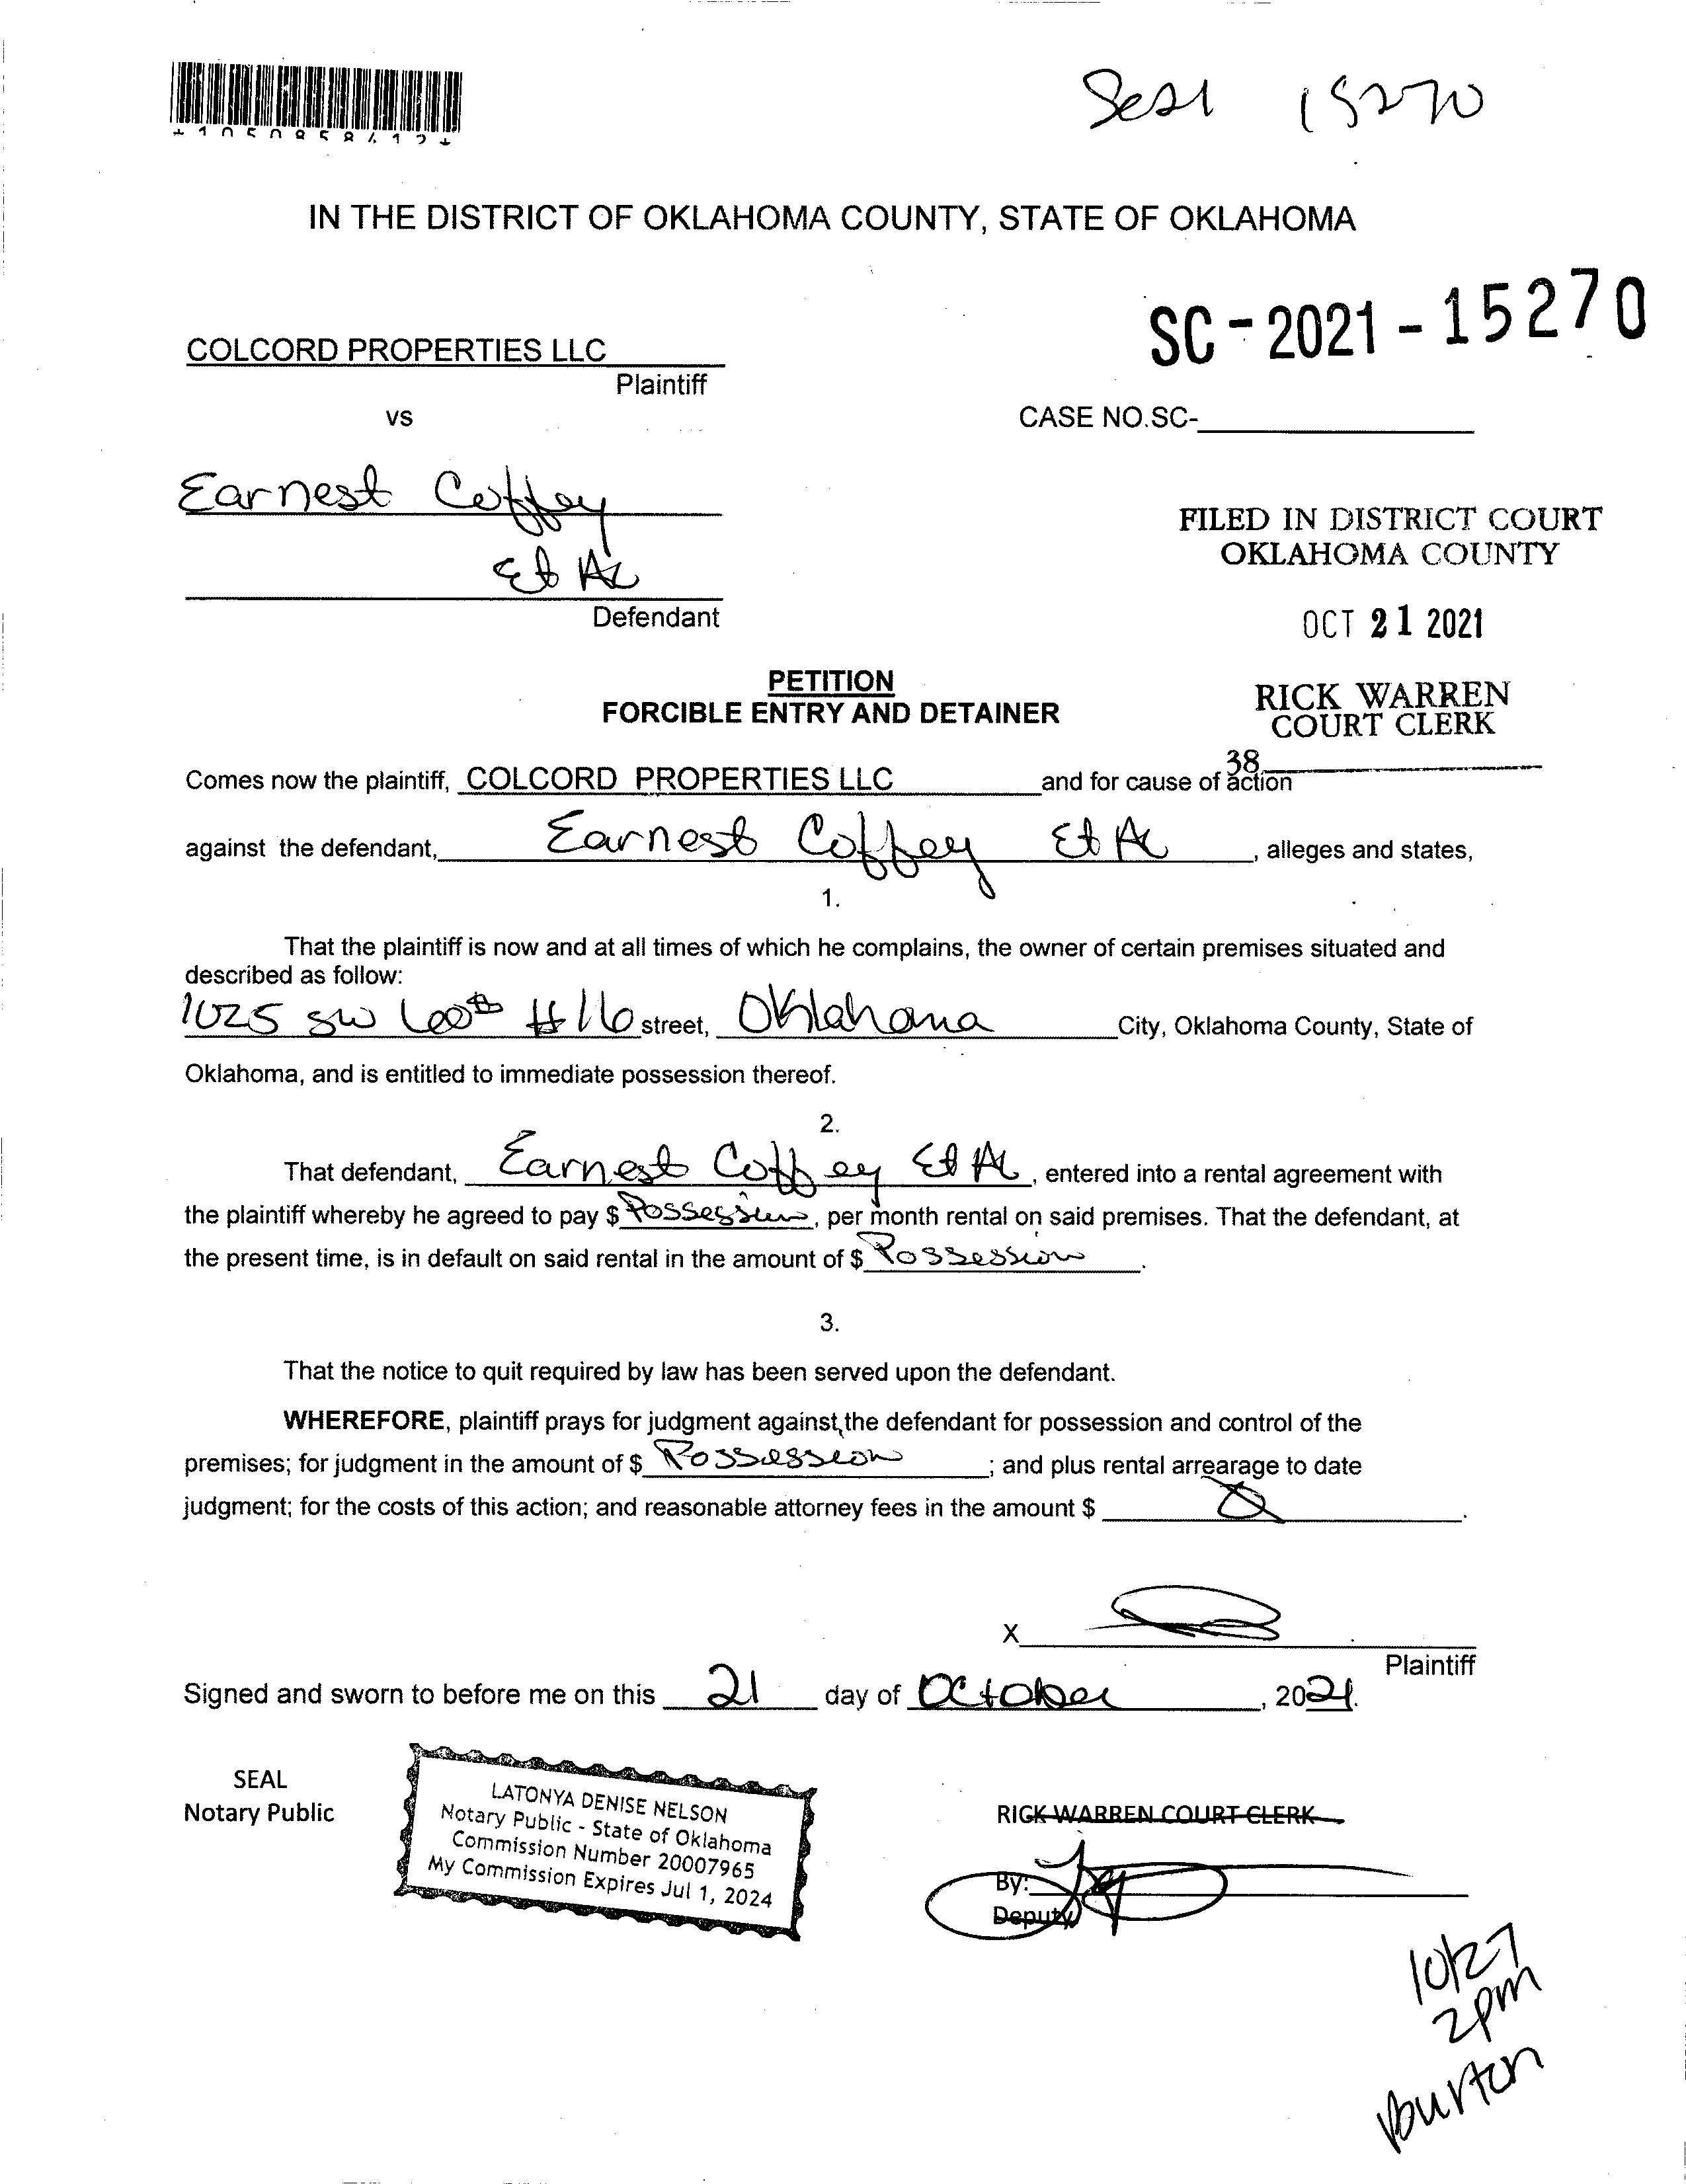 15270
IN THE DISTRICT OF OKLAHOMA COUNTY, STATE OF OKLAHOMA
SC-2021-15270
COLCORD PROPERTIES LLC
Plaintiff
vs
CASE NO.SC-
Earnest Coffey
Et Al
Defendant
FILED IN DISTRICT COURT
OKLAHOMA COUNTY
OCT 21 2021
RICK WARREN
COURT CLERK
38
PETITION
FORCIBLE ENTRY AND DETAINER
Comes now the plaintiff, COLCORD PROPERTIES LLC and for cause of action
against the defendant, Earnest Coffey Et Al, alleges and states,
1.
That the plaintiff is now and at all times of which he complains, the owner of certain premises situated and
described as follow:
1025 SW 60th #16 street, Oklahoma City, Oklahoma County, State of
Oklahoma, and is entitled to immediate possession thereof.
2.
That defendant, Earnest Coffey Et Al, entered into a rental agreement with
the plaintiff whereby he agreed to pay $ Possession, per month rental on said premises. That the defendant, at
the present time, is in default on said rental in the amount of $ Possession.
3.
That the notice to quit required by law has been served upon the defendant.
WHEREFORE, plaintiff prays for judgment against the defendant for possession and control of the
premises; for judgment in the amount of $ Possession; and plus rental arrearage to date
judgment; for the costs of this action; and reasonable attorney fees in the amount $ 0.
X
Plaintiff
Signed and sworn to before me on this 21 day of October, 2021.
SEAL
Notary Public
LATONYA DENISE NELSON
Notary Public - State of Oklahoma
Commission Number 20007965
My Commission Expires Jul 1, 2024
RICK WARREN COURT CLERK
By:
Deputy
10/27
2pm
Burton